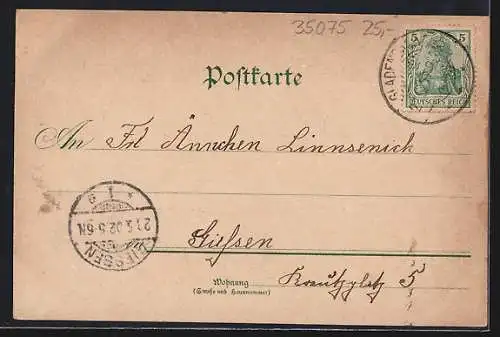 35075 25,-
5 5
DEUTSCHES REICH
GLADEN
Postkarte
An Frl Ännchen Linnsenich
GIESSEN
21.5.02.5-6N.
* 1 g
Giessen
Wohnung
(Strasse und Hausnummer)
Kreutzplatz 5